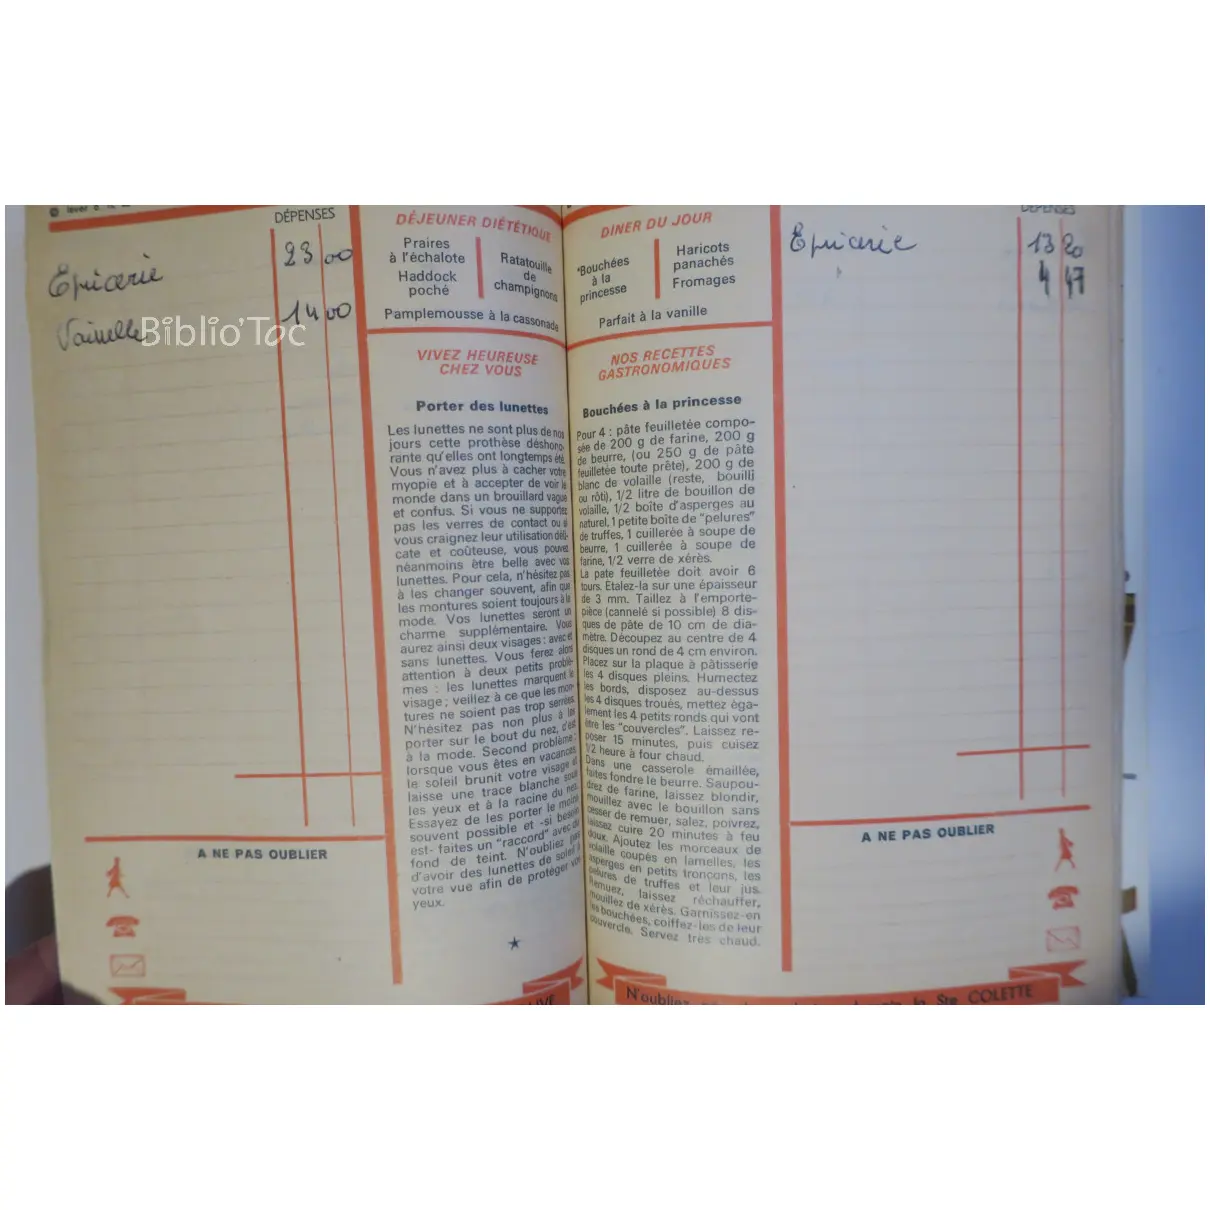 DÉPENSES
Epicerie 23 00
Vaisselle 14 00
Biblio'Toc
DÉJEUNER DIÉTÉTIQUE
Praires
à l'échalote
Haddock
poché
Ratatouille
de
champignons
Pamplemousse à la cassonade
VIVEZ HEUREUSE
CHEZ VOUS
Porter des lunettes
Les lunettes ne sont plus de nos
jours cette prothèse déshono-
rante qu'elles ont longtemps été.
Vous n'avez plus à cacher votre
myopie et à accepter de voir le
monde dans un brouillard vague
et confus. Si vous ne supportez
pas les verres de contact ou si
vous craignez leur utilisation déli-
cate et coûteuse, vous pouvez
néanmoins être belle avec vos
lunettes. Pour cela, n'hésitez pas
à les changer souvent, afin que
les montures soient toujours à la
mode. Vos lunettes seront un
charme supplémentaire. Vous
aurez ainsi deux visages : avec et
sans lunettes. Vous ferez alors
attention à deux petits problè-
mes : les lunettes marquent le
visage ; veillez à ce que les mon-
tures ne soient pas trop serrées.
N'hésitez pas non plus à les
porter sur le bout du nez, c'est
à la mode. Second problème :
lorsque vous êtes en vacances,
le soleil brunit votre visage et
laisse une trace blanche sous
les yeux et à la racine du nez.
Essayez de les porter le moins
souvent possible et -si besoin
est- faites un "raccord" avec du
fond de teint. N'oubliez pas
d'avoir des lunettes de soleil à
votre vue afin de protéger vos
yeux.
A NE PAS OUBLIER
DINER DU JOUR
*Bouchées
à la
princesse
Haricots
panachés
Fromages
Parfait à la vanille
NOS RECETTES
GASTRONOMIQUES
Bouchées à la princesse
Pour 4 : pâte feuilletée compo-
sée de 200 g de farine, 200 g
de beurre, (ou 250 g de pâte
feuilletée toute prête), 200 g de
blanc de volaille (reste, bouilli
ou rôti), 1/2 litre de bouillon de
volaille, 1/2 boîte d'asperges au
naturel, 1 petite boîte de "pelures"
de truffes, 1 cuillerée à soupe de
beurre, 1 cuillerée à soupe de
farine, 1/2 verre de xérès.
La pate feuilletée doit avoir 6
tours. Etalez-la sur une épaisseur
de 3 mm. Taillez à l'emporte-
pièce (cannelé si possible) 8 dis-
ques de pâte de 10 cm de dia-
mètre. Découpez au centre de 4
disques un rond de 4 cm environ.
Placez sur la plaque à pâtisserie
les 4 disques pleins. Humectez
les bords, disposez au-dessus
les 4 disques troués, mettez éga-
lement les 4 petits ronds qui vont
être les "couvercles". Laissez re-
poser 15 minutes, puis cuisez
1/2 heure à four chaud.
Dans une casserole émaillée,
faites fondre le beurre. Saupou-
drez de farine, laissez blondir,
mouillez avec le bouillon sans
cesser de remuer, salez, poivrez,
laissez cuire 20 minutes à feu
doux. Ajoutez les morceaux de
volaille coupés en lamelles, les
asperges en petits tronçons, les
pelures de truffes et leur jus.
Remuez, laissez réchauffer,
mouillez de xérès. Garnissez-en
les bouchées, coiffez-les de leur
couvercle. Servez très chaud.
DÉPENSES
Epicerie 13 20
4 47
A NE PAS OUBLIER
N'oubliez la Ste COLETTE